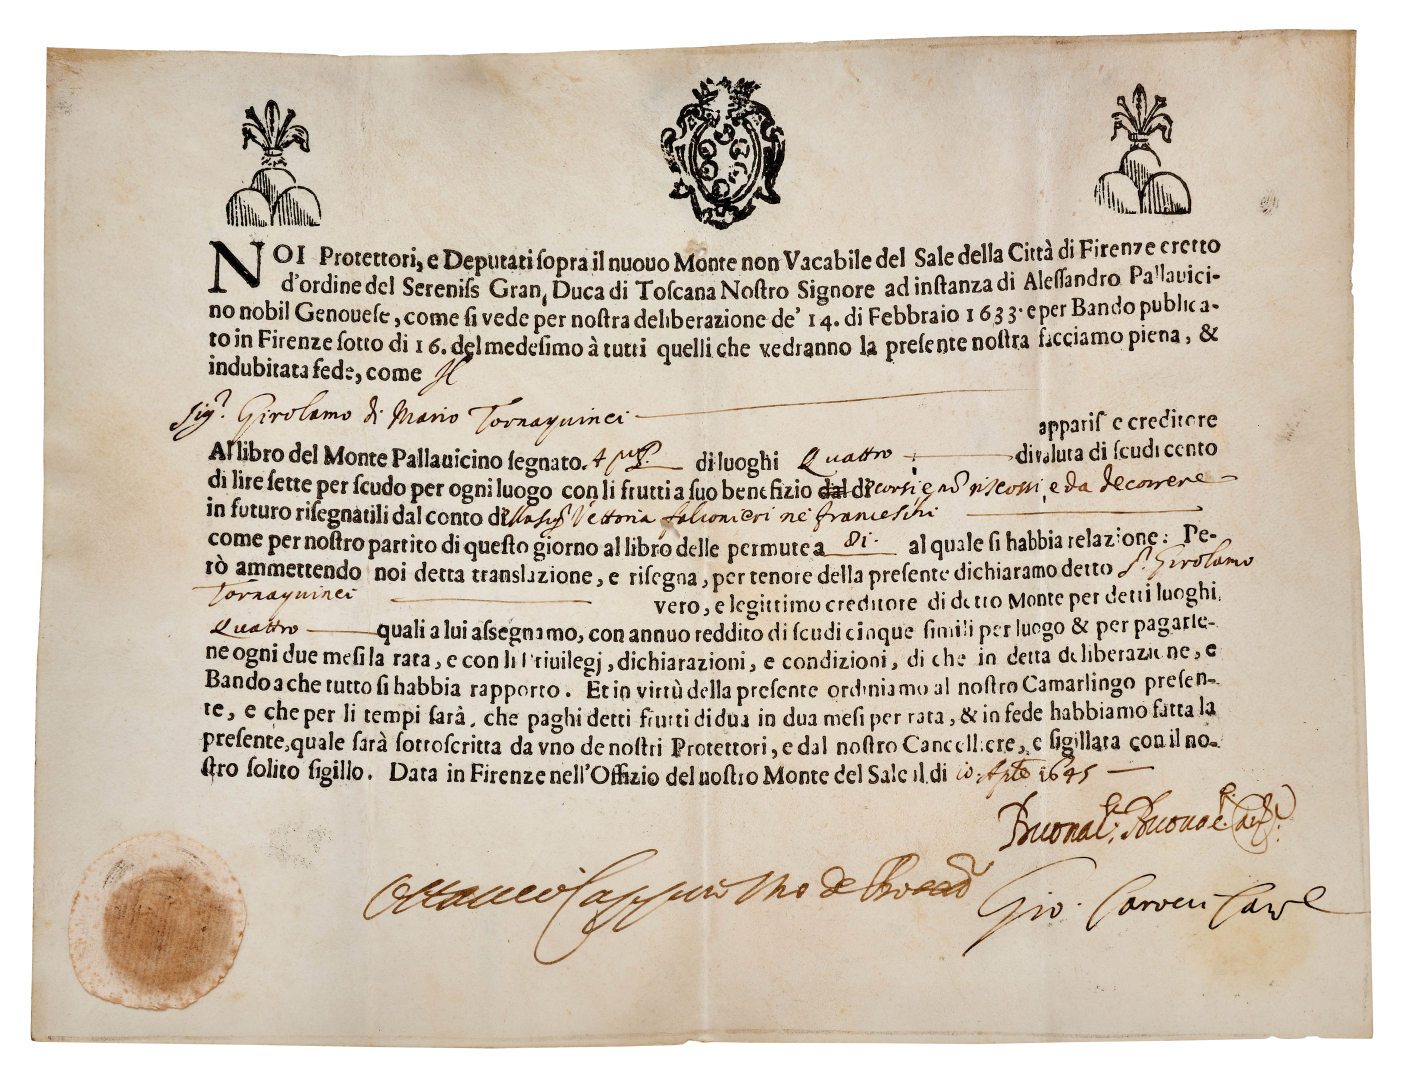 NOI Protettori, e Deputati sopra il nuouo Monte non Vacabile del Sale della Città di Firenze eretto
d'ordine del Sereniss Gran, Duca di Toscana Nostro Signore ad instanza di Alessandro Pallauici-
no nobil Genouese, come si vede per nostra deliberazione de' 14. di Febbraio 1633. e per Bando publica-
to in Firenze sotto di 16. del medesimo à tutti quelli che vedranno la presente nostra facciamo piena, &
indubitata fede, come Il
Sig.r Girolamo di Mario Tornaquinci
apparisce creditore
Al libro del Monte Pallauicino segnato. di luoghi Quattro di valuta di scudi cento
di lire sette per scudo per ogni luogo con li frutti a suo benefizio dal di scorsi e nõ riscossi, e da decorrere
in futuro risegnatili dal conto di Vettoria falconieri ne franceschi
come per nostro partito di questo giorno al libro delle permute a 81. al quale si habbia relazione: Pe-
rò ammettendo noi detta translazione, e risegna, per tenore della presente dichiaramo detto S.r Girolamo
Tornaquinci vero, e legittimo creditore di detto Monte per detti luoghi
Quattro quali a lui assegnamo, con annuo reddito di scudi cinque simili per luogo & per pagarle-
ne ogni due mesi la rata, e con li Priuilegj, dichiarazioni, e condizioni, di che in detta deliberazione, e
Bando a che tutto si habbia rapporto. Et in virtù della presente ordiniamo al nostro Camarlingo presen-
te, e che per li tempi sarà, che paghi detti frutti di dua in dua mesi per rata, & in fede habbiamo fatta la
presente, quale sarà sottoscritta da vno de nostri Protettori, e dal nostro Cancelliere, e sigillata con il no-
stro solito sigillo. Data in Firenze nell'Offizio del nostro Monte del Sale il di 1645
Buonac.
Gio.